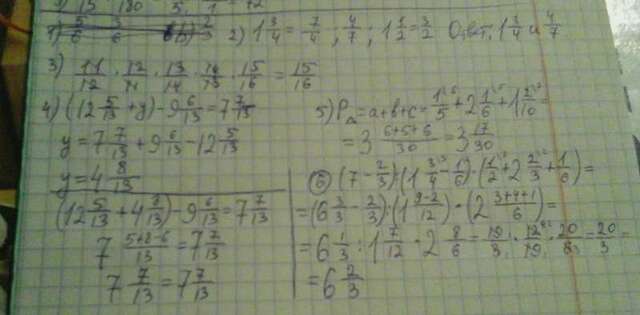 2) 1 3/4 = 7/4 ; 4/7 ; 1 1/2 = 3/2 Ответ: 1 3/4 и 4/7
3) 11/12 · 12/11 · 13/14 · 14/13 · 15/16 = 15/16
4) (12 5/13 + y) - 9 6/13 = 7 7/13
y = 7 7/13 + 9 6/13 - 12 5/13
y = 4 8/13
(12 5/13 + 4 8/13) - 9 6/13 = 7 7/13
7 5+8-6/13 = 7 7/13
7 7/13 = 7 7/13
5) P△ = a+b+c = 1/5 + 2 1/6 + 1 2/10 =
= 3 6+5+6/30 = 3 17/30
6) (7 - 2/3) : (1 3/4 - 1/6) · (1/2 + 2 2/3 + 1/6) =
= (6 3/3 - 2/3) : (1 9-2/12) · (2 3+4+1/6) =
= 6 1/3 : 1 7/12 · 2 8/6 = 19/3 · 12/19 · 20/8 = 20/3 =
= 6 2/3